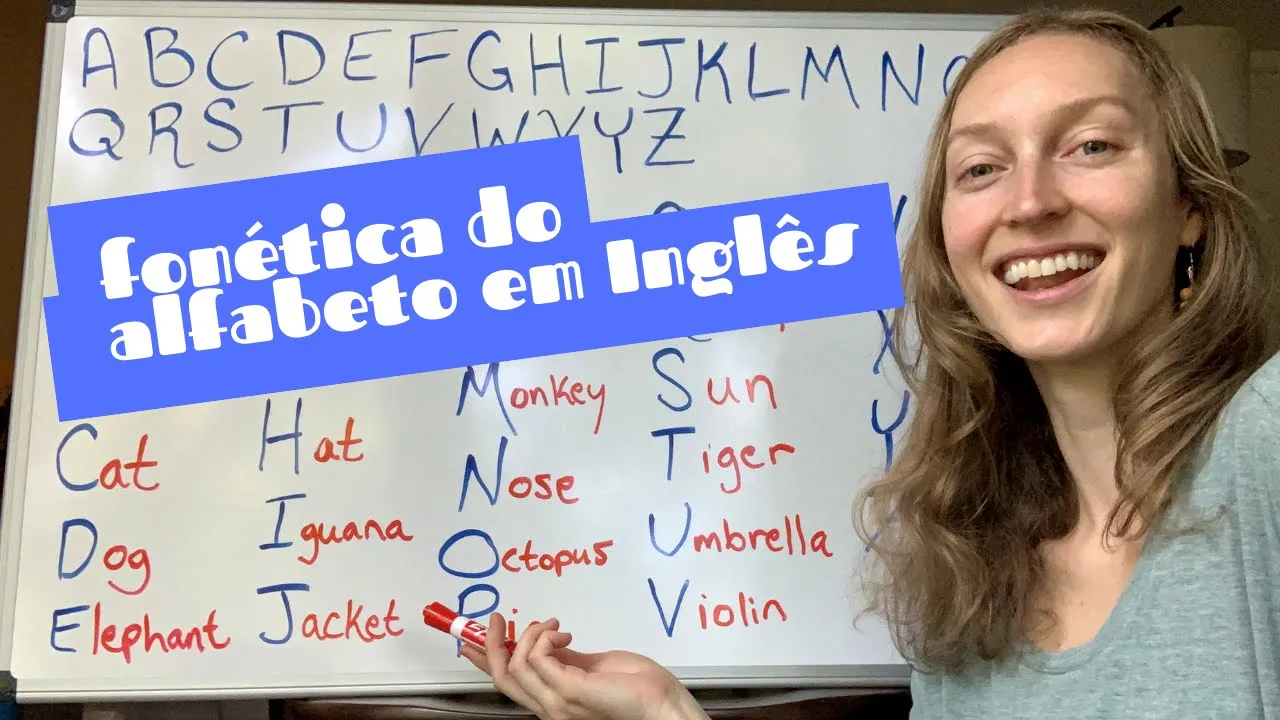 A B C D E F G H I J K L M N
Q R S T U V W X Y Z
fonética do
alfabeto em Inglês
Cat
Dog
Elephant
Hat
Iguana
Jacket
Monkey
Nose
Octopus
Sun
Tiger
Umbrella
Violin
X
Y